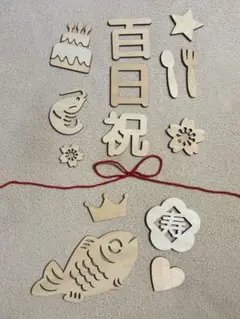 百日祝
寿